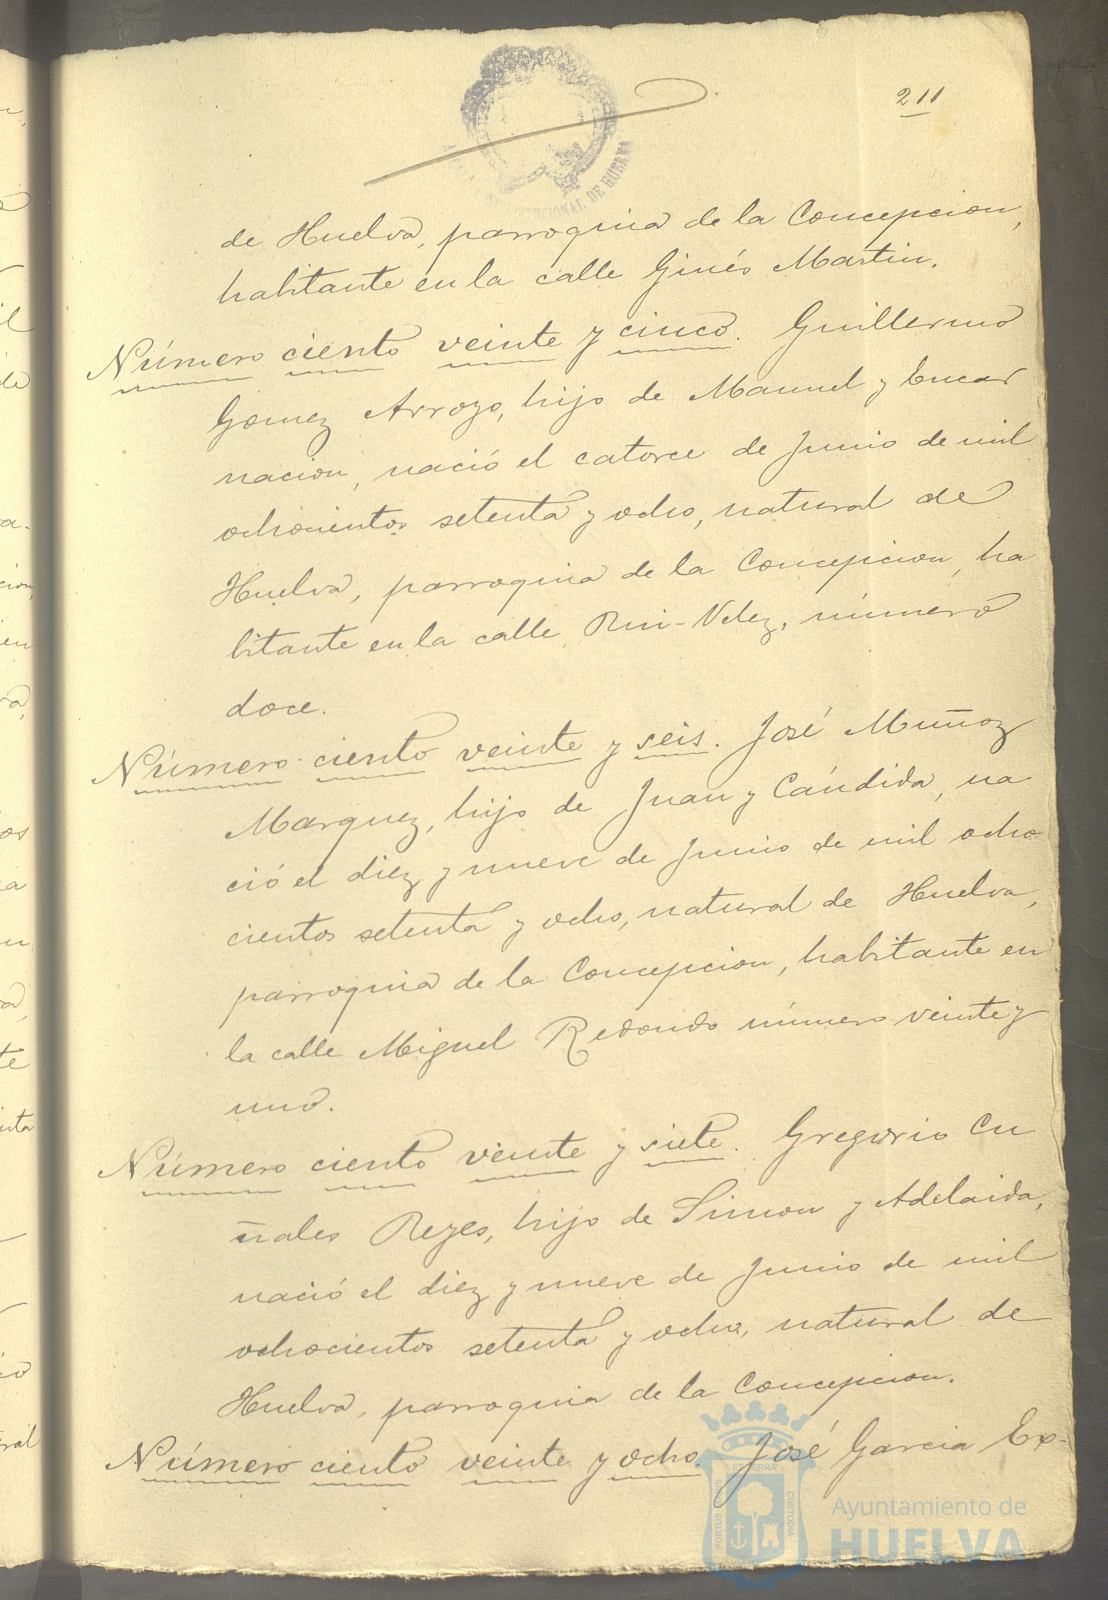 211
DE HUELVA
de Huelva, parroquia de la Concepcion,
habitante en la calle Ginés Martin.
Número ciento veinte y cinco. Guillermo
Gomez Arroyo, hijo de Manuel y Encar
nacion, nació el catorce de Junio de mil
ochocientos setenta y ocho, natural de
Huelva, parroquia de la Concepcion, ha
bitante en la calle Rui-Velez, número
doce.
Número ciento veinte y seis. José Muñoz
Marquez, hijo de Juan y Cándida, na
ció el diez y nueve de Junio de mil ocho
cientos setenta y ocho, natural de Huelva,
parroquia de la Concepcion, habitante en
la calle Miguel Redondo número veinte y
uno.
Número ciento veinte y siete. Gregorio Cu
ñales Reyes, hijo de Simon y Adelaida,
nació el diez y nueve de Junio de mil
ochocientos setenta y ocho, natural de
Huelva, parroquia de la Concepcion.
Número ciento veinte y ocho. José Garcia Ex-
PORTUS MARIS ET TERRÆ CUSTODIA
Ayuntamiento de
HUELVA